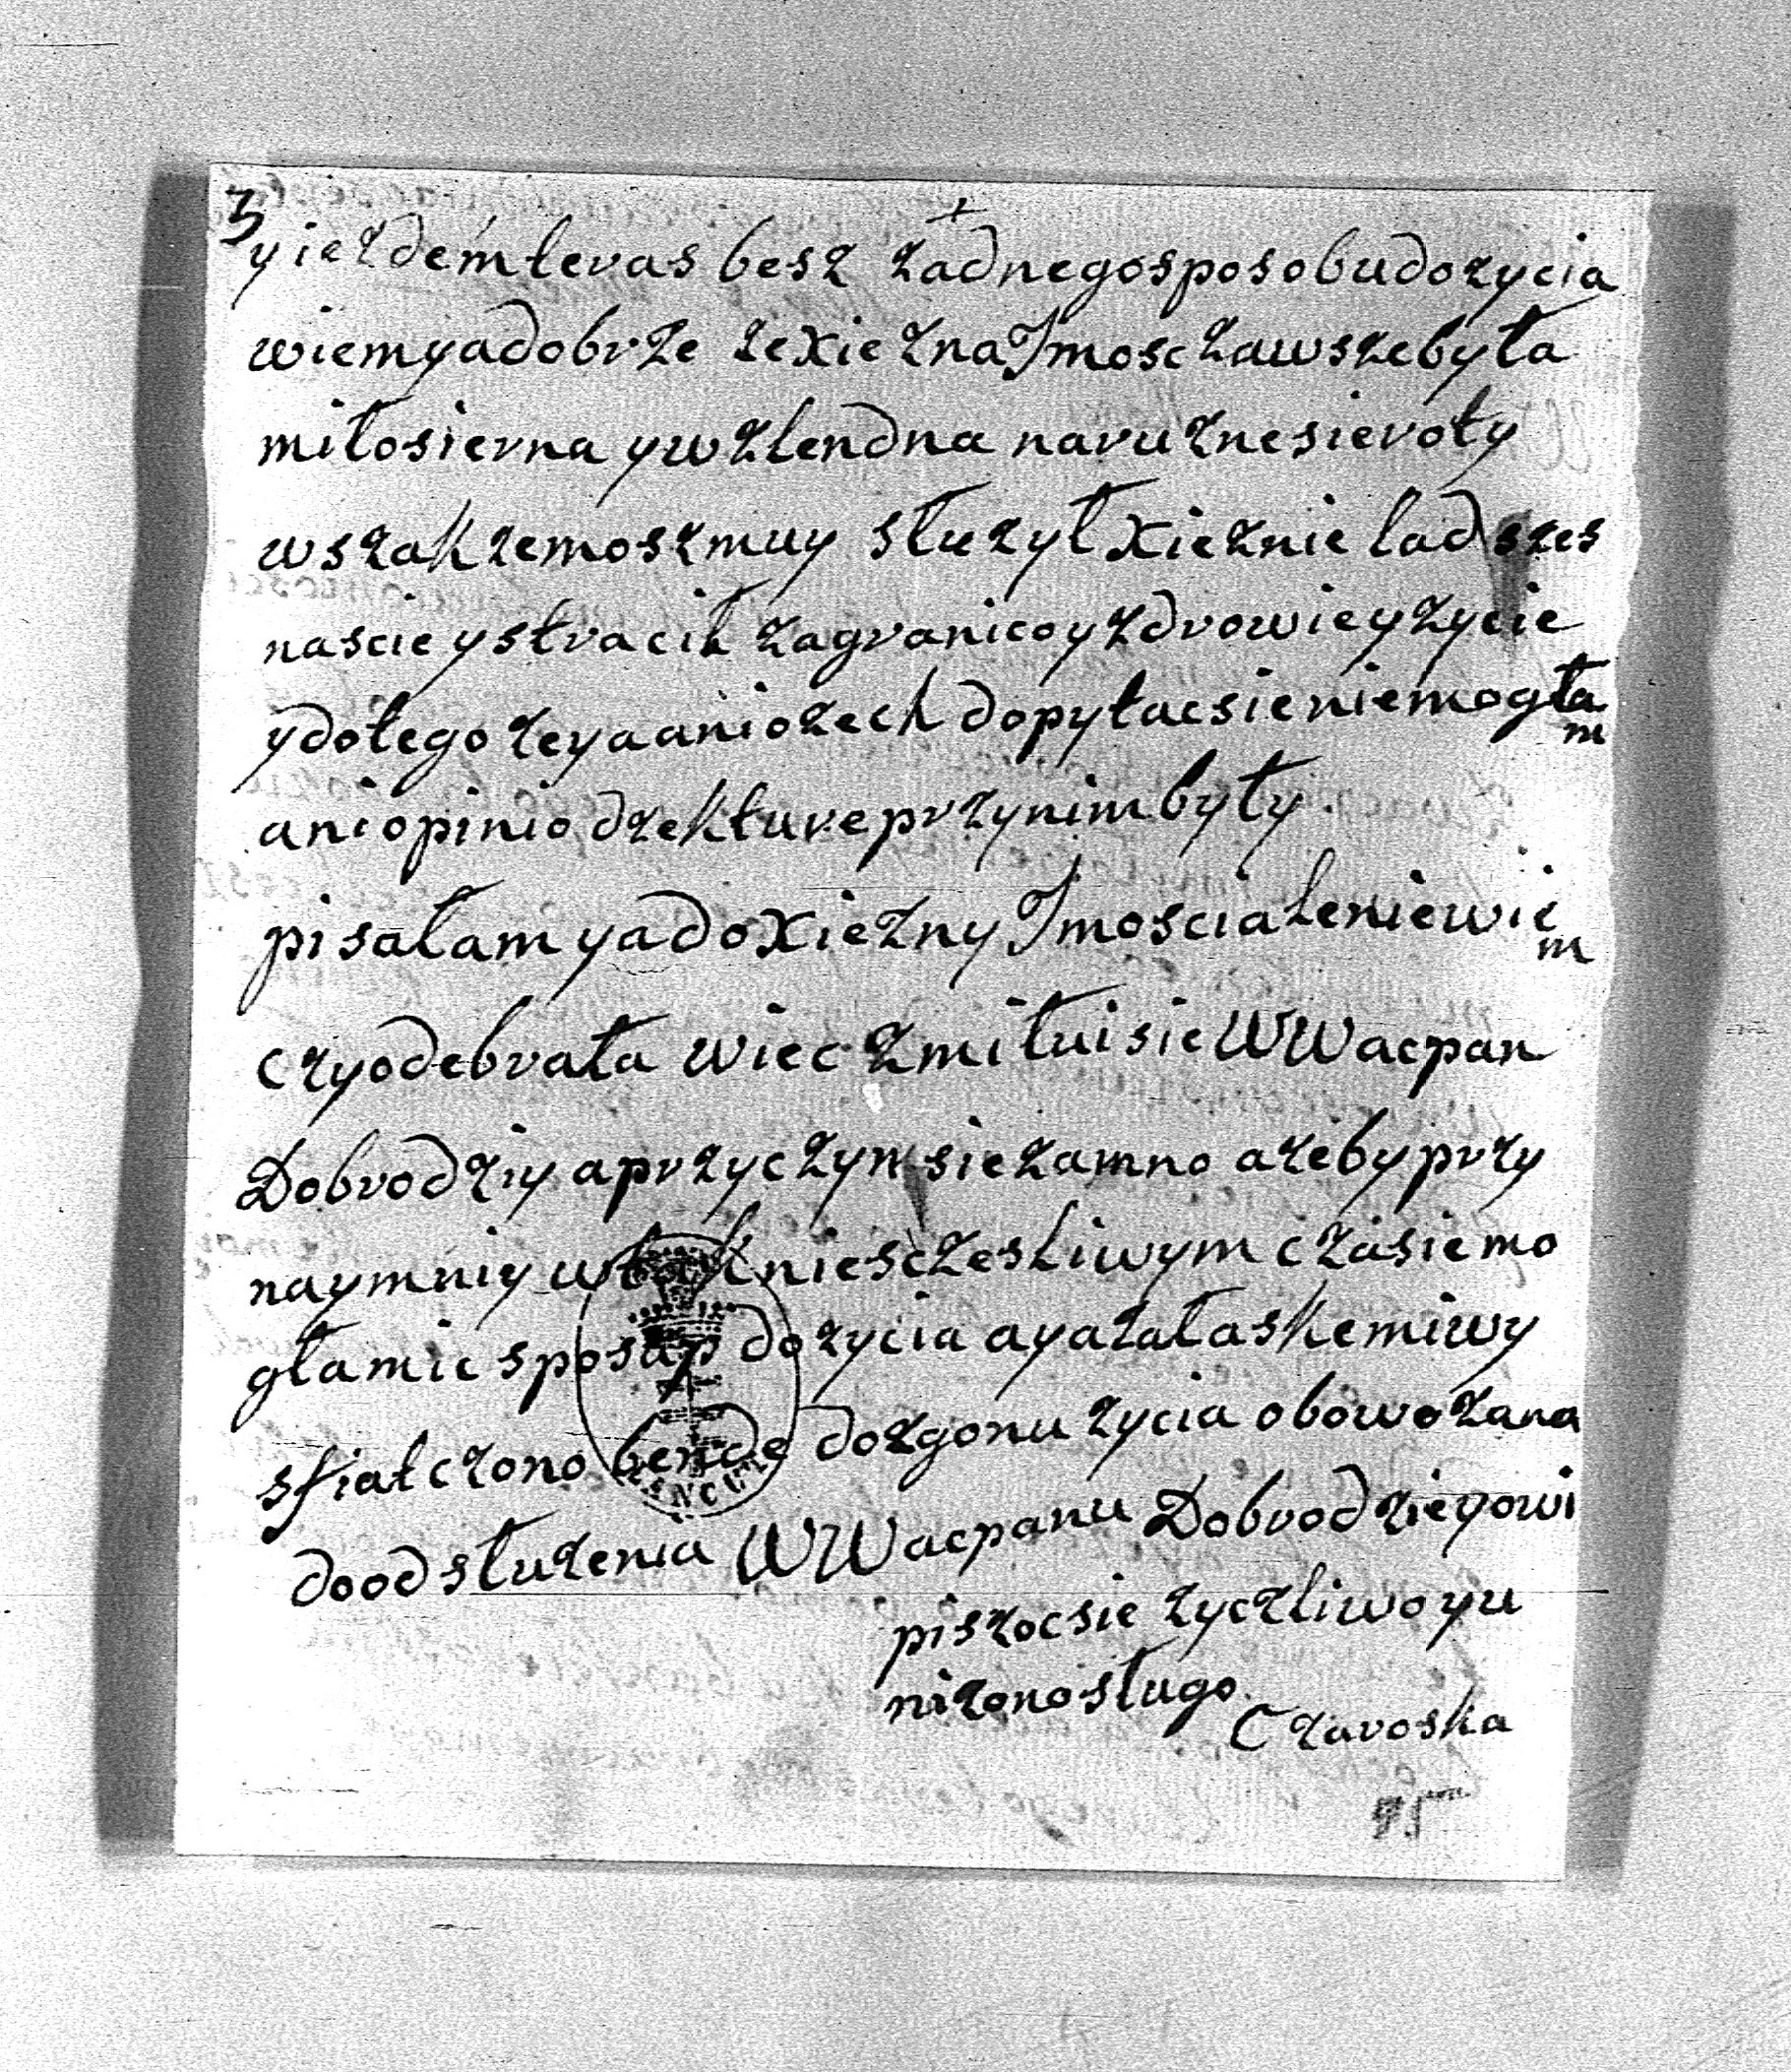 3
yiezdem teras besz zadnego sposobu do zycia
wiem ya dobrze ze xiezna Jmosc zawsze była
miłosierna y wzlendna na ruzne sieroty
wszak ze mosz muy słuzył xieznie lad szes
nascie y stracił zagranico y zdrowie y zycie
y do tego ze ya ani ozech dopytac sie nie mogłam
ani opinio dze kture przy nim były
pisałam ya do xiezny Jmoscia le nie wiem
czy odebrata wiec zmiłui sie W Wacpan
Dobrodziy a przyczyn sie zamno azeby przy
naymniy w tak niesczesliwym czasie mo
gła mie sposup do zycia a ya za łaske mi wy
sfiatczono bende do zgonu zycia obowozana
do odsłuzenia W Wacpanu Dobrodzieyowi
piszoc sie zyczliwo y u
nizono sługo
Czaroska
95